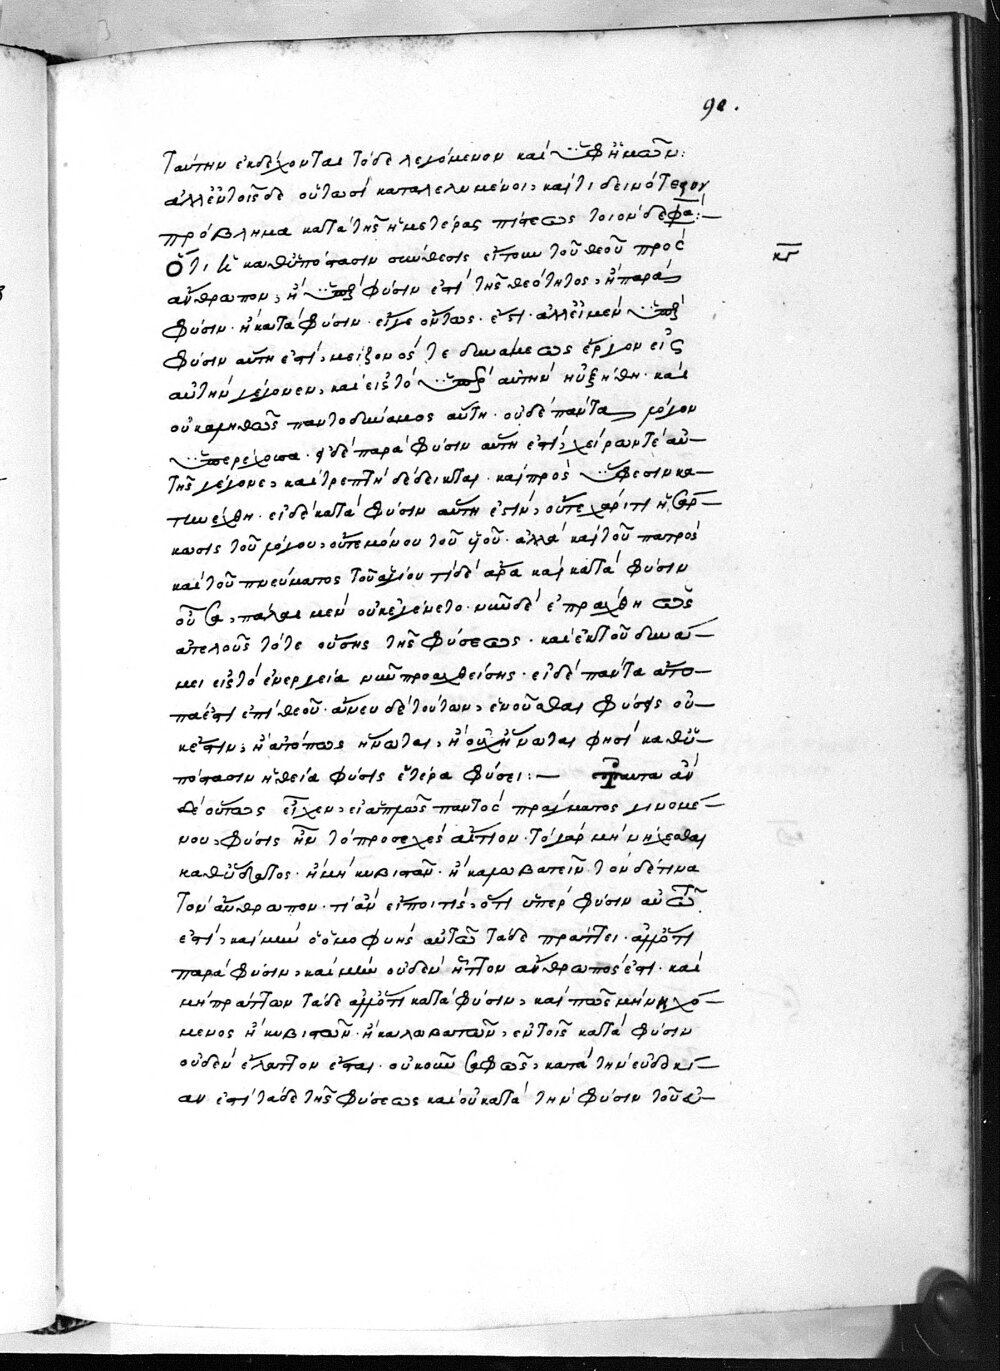 90.
ταύτην ἐκδέχονται τὸ δὲ λεγόμενον καὶ ὑφ' ἡμῶν:
ἀλλ' ἐν τοῖσδε οὕτωσὶ καταλελυμένοις καί τι δεινότερον
πρόβλημα κατὰ τῆς ἡμετέρας πίστεως τοιόνδε φασί:—
Ὅτι ἡ καθ' ὑπόστασιν σύνθεσις εἴπουν τοῦ θεοῦ πρὸς
κγ
ἄνθρωπον, ἢ ὑπὲρ φύσιν ἐστὶ τῆς θεότητος, ἢ παρὰ
φύσιν· ἢ κατὰ φύσιν· εἴγε ὄντως ἐστι· ἀλλ' εἰ μὲν ὑπὲρ
φύσιν αὕτη ἐστί, μείζονός τε δυνάμεως ἔργον εἰς
αὐτὴν γέγονεν, καὶ εἰς τὸ ὑπὲρ αὐτὴν ηὐξήθη· καὶ
οὐκ ἀληθῶς παντοδύναμος αὕτη· οὐδὲ πάντα λόγον
ὑπερέχουσα· εἰ δὲ παρὰ φύσιν αὕτη ἐστί, χείρων τε αὐ-
τῆς γέγονε, καὶ τρεπτὴ δέδεικται· καὶ πρὸς ὕφεσιν κα-
τηνέχθη· εἰ δὲ κατὰ φύσιν αὕτη ἐστίν, οὔτε χάριτι ἡ σάρ-
κωσις τοῦ λόγου, οὔτε μόνου τοῦ υἱοῦ· ἀλλὰ καὶ τοῦ πατρὸς
καὶ τοῦ πνεύματος τοῦ ἁγίου τί δὲ ἄρα καὶ κατὰ φύσιν
οὖσα, πάλαι μὲν οὐκ ἐγένετο· νῦν δὲ ἐπράχθη ὡς
ἀτελοῦς τότε οὔσης τῆς φύσεως· καὶ ἐκ τοῦ δυνά-
μει εἰς τὸ ἐνεργείᾳ νῦν προαχθείσης· εἰ δὲ πάντα ἄτο-
πά ἐστι ἐπὶ θεοῦ· ἄνευ δὲ τούτων, ἑνοῦσθαι φύσις οὐ-
κ ἔστιν, ἢ ἀτόπως ἥνωται, ἢ οὐχ ἥνωται φησὶ καθ' ὑ-
πόστασιν ἡ θεία φύσις ἑτέρᾳ φύσει:— ταῦτα ἂν
δὲ οὕτως εἶχεν, εἰ ἁπλῶς παντὸς πράγματος γινομέ-
νου, φύσις ἦν τὸ προσεχὲς αἴτιον· τὸ γὰρ μὴ νήχεσθαι
καθ' ὕδατος· ἢ μὴ κυβιστᾶν· ἢ καλοβατεῖν τόνδε τινα
τὸν ἄνθρωπον· τί ἂν εἴποι τίς, ὅτι ὑπὲρ φύσιν αὐτῷ
ἐστί, καὶ μὴν ὁ ὁμοφυὴς αὐτῷ τάδε πράττει· ἀλλ' ὅτι
παρὰ φύσιν, καὶ μὴν οὐδὲν ἧττον ἄνθρωπός ἐστι· καὶ
μὴ πράττων τάδε ἀλλ' ὅτι κατὰ φύσιν, καὶ πῶς μὴ νηχό-
μενος ἢ κυβιστῶν· ἢ καλοβατῶν, ἐν τοῖς κατὰ φύσιν
οὐδὲν ἔλαττον ἔσται· οὐκοῦν σαφῶς, κατὰ τὴν εὐδοκί-
αν ἐστὶ τάδε τῆς φύσεως καὶ οὐ κατὰ τὴν φύσιν τοῦ ὑ-